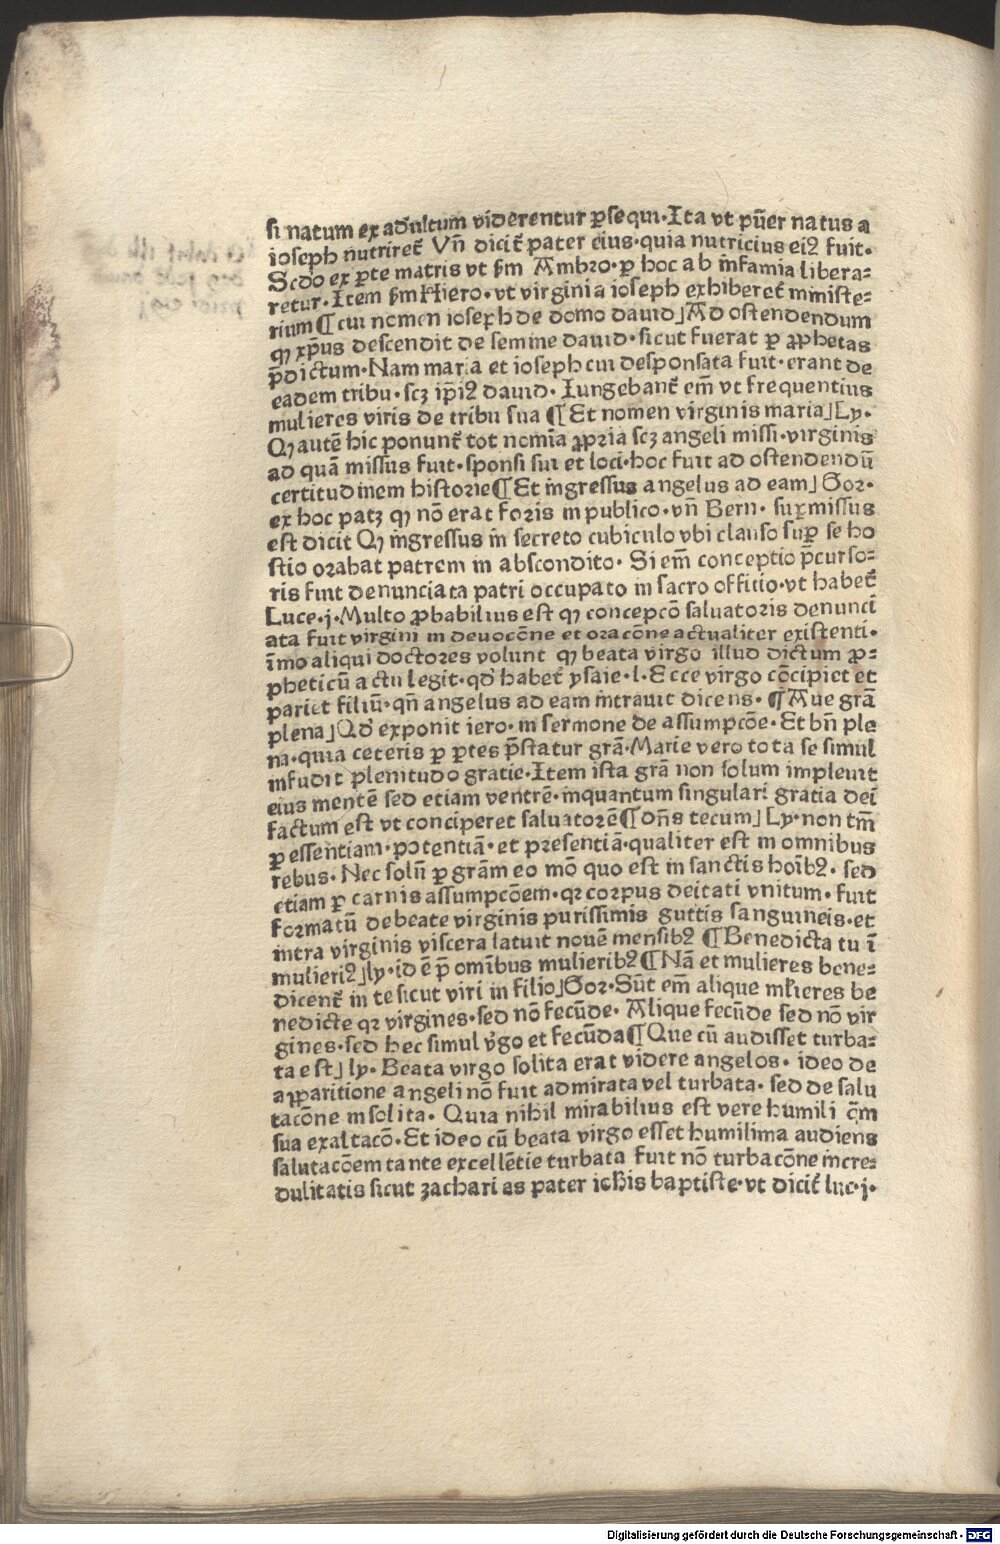 si natum ex adultum viderentur ꝑsequi·Ita vt pūer natus a
ioseph nutriret᷑ Vn̄ dicit᷑ pater eius·quia nutricius eiꝰ fuit·
Scd̓o ex ꝑte matris vt s̄m Ambro·ꝑ hoc ab infamia libera⸗
retur·Item s̄m Hiero·vt virgini a ioseph exhiberet᷑ ministe⸗
rium ¶ cui nomen ioseph de domo dauid⌋Ad ostendendum
qꝫ xp̄us descendit de semine dauid·sicut fuerat ꝑ ꝓphetas
p̄dictum·Nam maria et ioseph cui desponsata fuit·erant de
eadem tribu·scꝫ ip̄iꝰ dauid·Iungebant᷑ em̄ vt frequentius
mulieres viris de tribu sua ¶ Et nomen virginis maria⌋Ly·
Qꝫ autē hic ponunt᷑ tot nomīa ꝓpria scꝫ angeli missi·virginis
ad quā missus fuit·sponsi sui et loci·hoc fuit ad ostendendū
certitudinem historie ¶ Et ingressus angelus ad eam⌋ Gor·
ex hoc patꝫ qꝫ nō erat foris in publico·vn̄ Bern· suꝑ missus
est dicit Qꝫ ingressus in secreto cubiculo vbi clauso suꝑ se ho
stio orabat patrem in abscondito· Si em̄ conceptio p̄curso⸗
ris fuit denunciata patri occupato in sacro officio·vt habet᷑
Luce·j·Multo ꝓbabilius est qꝫ concepcō saluatoris denunci
ata fuit virgini in deuocōne et oracōne actualiter existenti·
īmo aliqui doctores volunt qꝫ beata virgo illud dictum ꝓ⸗
pheticū actu legit·qd̓ habet᷑ ysaie·l·Ecce virgo cōcipiet et
pariet filiū·qn̄ angelus ad eam intrauit dicens· ¶ Aue grā
plena⌋Qd̓ exponit iero·in sermone de assumpcōe·Et bn̄ ple
na·quia ceteris ꝑ ꝑtes p̄statur grā·Marie vero tota se simul
infudit plenitudo gratie·Item ista grā non solum impleuit
eius mentē sed etiam ventrē·inquantum singulari gratia dei
factum est vt conciperet saluatorē ¶ Dn̄s tecum⌋ Ly·non tm̄
ꝑ essentiam·potentiā·et presentiā·qualiter est in omnibus
rebus·Nec solū ꝑ grām eo mō quo est in sanctis hoībꝰ·sed
etiam ꝑ carnis assumpcōem·qꝛ corpus deitati vnitum·fuit
formatū de beate virginis purissimis guttis sanguineis·et
intra virginis viscera latuit nouē mensibꝰ ¶ Benedicta tu ī
mulieriꝰ⌋ly·id ē p̄ omībus mulieribꝰ ¶ Nā et mulieres bene⸗
dicent᷑ in te sicut viri in filio⌋Gor·Sūt em̄ alique mƚieres be
nedicte qꝛ virgines·sed nō fecūde· Alique fecūde sed nō vir
gines·sed hec simul v̓go et fecūda ¶ Que cū audisset turba⸗
ta est⌋ ly· Beata virgo solita erat videre angelos· ideo de
aꝑparitione angeli nō fuit admirata vel turbata·sed de salu
tacōne insolita· Quia nihil mirabilius est vere humili q̄m
sua exaltacō·Et ideo cū beata virgo esset humilima audiens
salutacōem tante excellētie turbata fuit nō turbacōne incre⸗
dulitatis sicut zacharias pater ioh̄is baptiste·vt dicit᷑ luc·j·
Digitalisierung gefördert durch die Deutsche Forschungsgemeinschaft - DFG